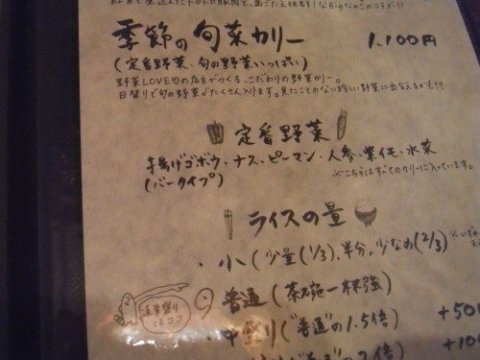 季節の旬菜カリー 1.100円
(定番野菜・旬の野菜いっぱい)
野菜LOVEの店主がつくる、こだわりの野菜カリー。
日替りで旬の野菜がたくさん入ります。見たことのない珍しい野菜に出会えるかも!!
定番野菜
手揚げゴボウ・ナス・ピーマン・人参・紫イモ・水菜
(バータイプ)
※こちらはすべてのカリーに入っています。
ライスの量
・小(少量(1/3),半分,少なめ(2/3)
普通(茶碗一杯強)
通常盛りはココ
・中盛り("普通"の1.5倍) +50